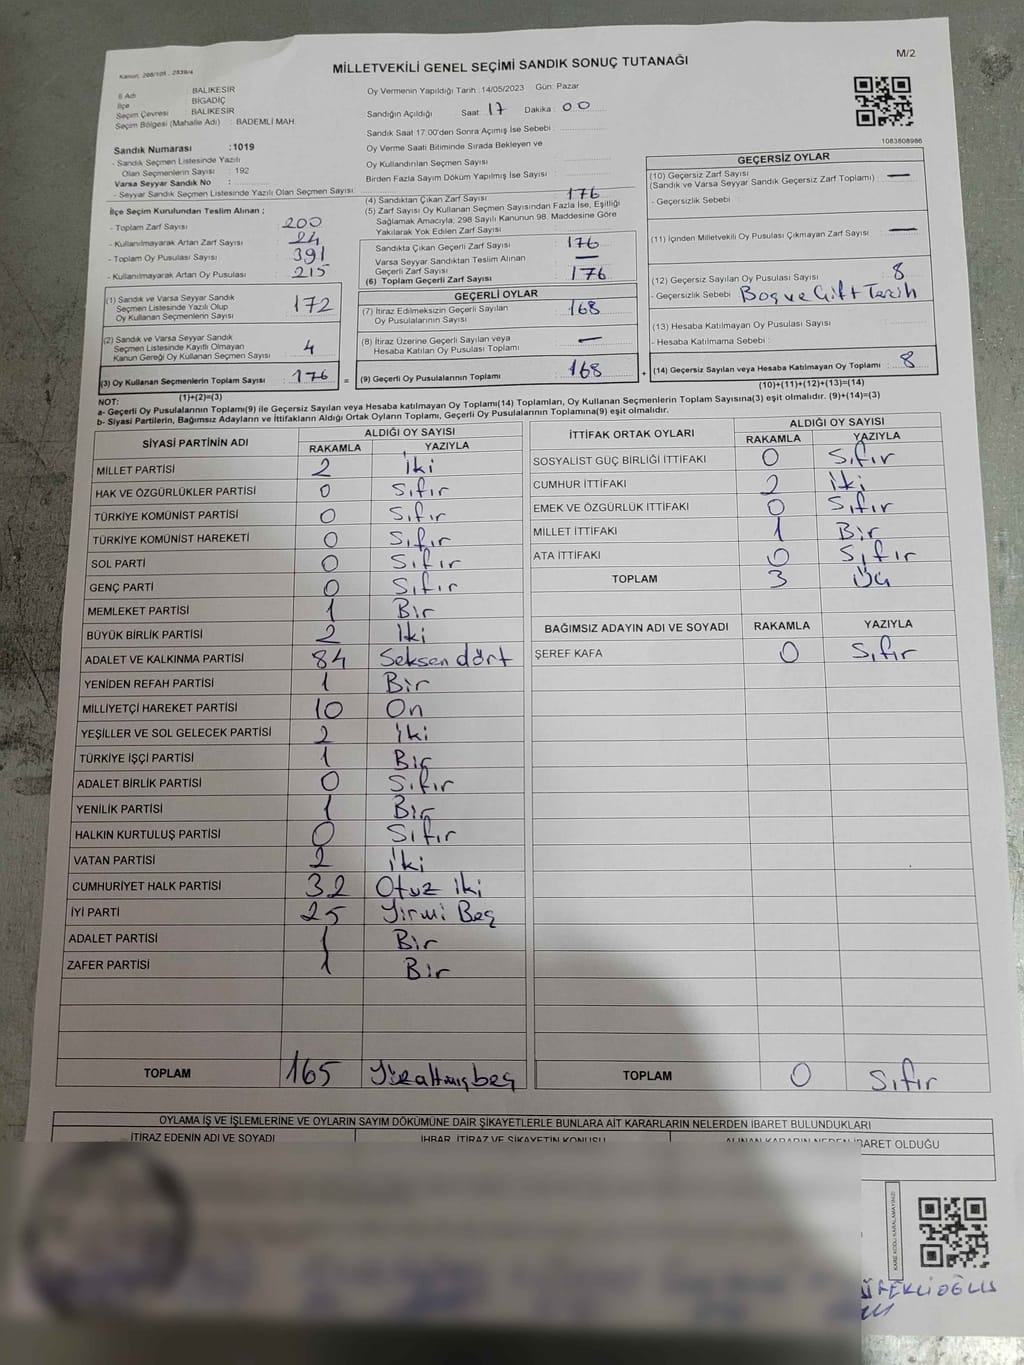 Kanun, 298/105 , 2839/4
MİLLETVEKİLİ GENEL SEÇİMİ SANDIK SONUÇ TUTANAĞI
M/2
İl Adı BALIKESİR
İlçe BİGADİÇ
Seçim Çevresi : BALIKESİR
Seçim Bölgesi (Mahalle Adı) : BADEMLİ MAH.
Oy Vermenin Yapıldığı Tarih : 14/05/2023 Gün: Pazar
Sandığın Açıldığı Saat : 17 Dakika : 00
Sandık Saat 17:00'den Sonra Açımış İse Sebebi :
Oy Verme Saati Bitiminde Sırada Bekleyen ve
Oy Kullandırılan Seçmen Sayısı
Birden Fazla Sayım Döküm Yapılmış İse Sayısı :
1083808986
Sandık Numarası : 1019
- Sandık Seçmen Listesinde Yazılı
Olan Seçmenlerin Sayısı : 192
Varsa Seyyar Sandık No :
- Seyyar Sandık Seçmen Listesinde Yazılı Olan Seçmen Sayısı :
İlçe Seçim Kurulundan Teslim Alınan ;
- Toplam Zarf Sayısı 200
- Kullanılmayarak Artan Zarf Sayısı 24
- Toplam Oy Pusulası Sayısı 391
- Kullanılmayarak Artan Oy Pusulası 215
(1) Sandık ve Varsa Seyyar Sandık
Seçmen Listesinde Yazılı Olup
Oy Kullanan Seçmenlerin Sayısı 172
(2) Sandık ve Varsa Seyyar Sandık
Seçmen Listesinde Kayıtlı Olmayan
Kanun Gereği Oy Kullanan Seçmen Sayısı 4
(3) Oy Kullanan Seçmenlerin Toplam Sayısı 176 =
(1)+(2)=(3)
(4) Sandıktan Çıkan Zarf Sayısı 176
(5) Zarf Sayısı Oy Kullanan Seçmen Sayısından Fazla İse, Eşitliği
Sağlamak Amacıyla, 298 Sayılı Kanunun 98. Maddesine Göre
Yakılarak Yok Edilen Zarf Sayısı
Sandıkta Çıkan Geçerli Zarf Sayısı 176
Varsa Seyyar Sandıktan Teslim Alınan
Geçerli Zarf Sayısı —
(6) Toplam Geçerli Zarf Sayısı 176
GEÇERLİ OYLAR
(7) İtiraz Edilmeksizin Geçerli Sayılan
Oy Pusulalarının Sayısı 168
(8) İtiraz Üzerine Geçerli Sayılan veya
Hesaba Katılan Oy Pusulası Toplamı —
(9) Geçerli Oy Pusulalarının Toplamı 168 +
GEÇERSİZ OYLAR
(10) Geçersiz Zarf Sayısı
(Sandık ve Varsa Seyyar Sandık Geçersiz Zarf Toplamı) —
- Geçersizlik Sebebi :
(11) İçinden Milletvekili Oy Pusulası Çıkmayan Zarf Sayısı —
(12) Geçersiz Sayılan Oy Pusulası Sayısı 8
- Geçersizlik Sebebi Boş ve Çift Tercih
(13) Hesaba Katılmayan Oy Pusulası Sayısı
- Hesaba Katılmama Sebebi :
(14) Geçersiz Sayılan veya Hesaba Katılmayan Oy Toplamı 8
(10)+(11)+(12)+(13)=(14)
NOT:
a- Geçerli Oy Pusulalarının Toplamı(9) ile Geçersiz Sayılan veya Hesaba katılmayan Oy Toplamı(14) Toplamları, Oy Kullanan Seçmenlerin Toplam Sayısına(3) eşit olmalıdır. (9)+(14)=(3)
b- Siyasi Partilerin, Bağımsız Adayların ve İttifakların Aldığı Ortak Oyların Toplamı, Geçerli Oy Pusulalarının Toplamına(9) eşit olmalıdır.
SİYASİ PARTİNİN ADI ALDIĞI OY SAYISI
RAKAMLA YAZIYLA
MİLLET PARTİSİ 2 İki
HAK VE ÖZGÜRLÜKLER PARTİSİ 0 Sıfır
TÜRKİYE KOMÜNİST PARTİSİ 0 Sıfır
TÜRKİYE KOMÜNİST HAREKETİ 0 Sıfır
SOL PARTİ 0 Sıfır
GENÇ PARTİ 0 Sıfır
MEMLEKET PARTİSİ 1 Bir
BÜYÜK BİRLİK PARTİSİ 2 İki
ADALET VE KALKINMA PARTİSİ 84 Seksen dört
YENİDEN REFAH PARTİSİ 1 Bir
MİLLİYETÇİ HAREKET PARTİSİ 10 On
YEŞİLLER VE SOL GELECEK PARTİSİ 2 İki
TÜRKİYE İŞÇİ PARTİSİ 1 Bir
ADALET BİRLİK PARTİSİ 0 Sıfır
YENİLİK PARTİSİ 1 Bir
HALKIN KURTULUŞ PARTİSİ 0 Sıfır
VATAN PARTİSİ 2 İki
CUMHURİYET HALK PARTİSİ 32 Otuz iki
İYİ PARTİ 25 Yirmi Beş
ADALET PARTİSİ 1 Bir
ZAFER PARTİSİ 1 Bir
TOPLAM 165 Yüzaltmışbeş
İTTİFAK ORTAK OYLARI ALDIĞI OY SAYISI
RAKAMLA YAZIYLA
SOSYALİST GÜÇ BİRLİĞİ İTTİFAKI 0 Sıfır
CUMHUR İTTİFAKI 2 İki
EMEK VE ÖZGÜRLÜK İTTİFAKI 0 Sıfır
MİLLET İTTİFAKI 1 Bir
ATA İTTİFAKI 0 Sıfır
TOPLAM 3 Üç
BAĞIMSIZ ADAYIN ADI VE SOYADI RAKAMLA YAZIYLA
ŞEREF KAFA 0 Sıfır
TOPLAM 0 Sıfır
OYLAMA İŞ VE İŞLEMLERİNE VE OYLARIN SAYIM DÖKÜMÜNE DAİR ŞİKAYETLERLE BUNLARA AİT KARARLARIN NELERDEN İBARET BULUNDUKLARI
İTİRAZ EDENİN ADI VE SOYADI İHBAR, İTİRAZ VE ŞİKAYETİN KONUSU ALINAN KARARIN NEDEN İBARET OLDUĞU
KARE KODU KARALAMAYINIZ!